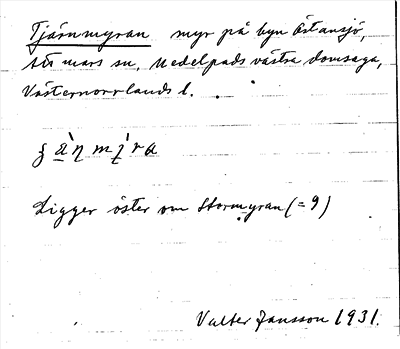 Tjärnmyran myr på byn Östansjö,
Attmars sn, Medelpads västra domsaga,
Västernorrlands l.
m
Ligger öster om Stormyran (= 9)
Valter Jansson 1931.